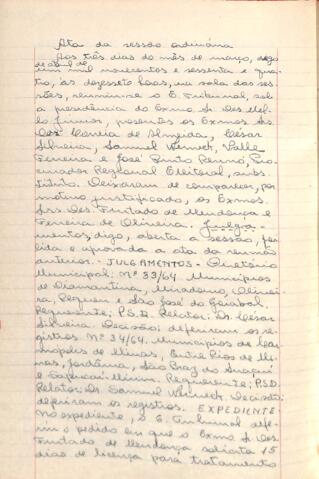 Ata da sessão ordinária
Aos três dias do mês de março, digo
de abril de
um mil novecentos e sessenta e qua-
tro, às dezessete horas, na sala das ses-
sões, reuniu-se o E. Tribunal, sob
a presidência do Exmo Sr. Des.
presentes os Exmos Srs
Des. Corrêa de Almeida, César
Silveira, Samuel Werneck, Valle
Ferreira e José Pinto Renno, Pro-
curador Regional Eleitoral, subs-
tituto. Deixaram de comparecer, por
motivo justificado, os Exmos.
Srs. Des. Furtado de Mendonça e
Ferreira de Oliveira. Julga-
mentos, digo, aberta a sessão, foi
lida e aprovada a ata da reunião
anterior. - JULGAMENTOS - Diretório
Municipal: Nº 33/64 Municípios
de Diamantina, Miradouro, Olivei-
ra, Pequeri e São José do Goiabal
Requerente: P.S.D. Relator: Dr. César
Silveira. Decisão: deferiram os re-
gistros. Nº 34/64. Municípios de
de Minas, Entre Rios de Mi-
nas, Jordânia, São Braz do Suaçuí
e Sapucaí-Mirim. Requerente: P.S.D.
Relator: Dr. Samuel Werneck. Decisão:
deferiram os registros. EXPEDIENTE
No expediente, o E. Tribunal defe-
riu o pedido em que o Exmo Sr. Des
Furtado de Mendonça solicita 15
dias de licença para tratamento